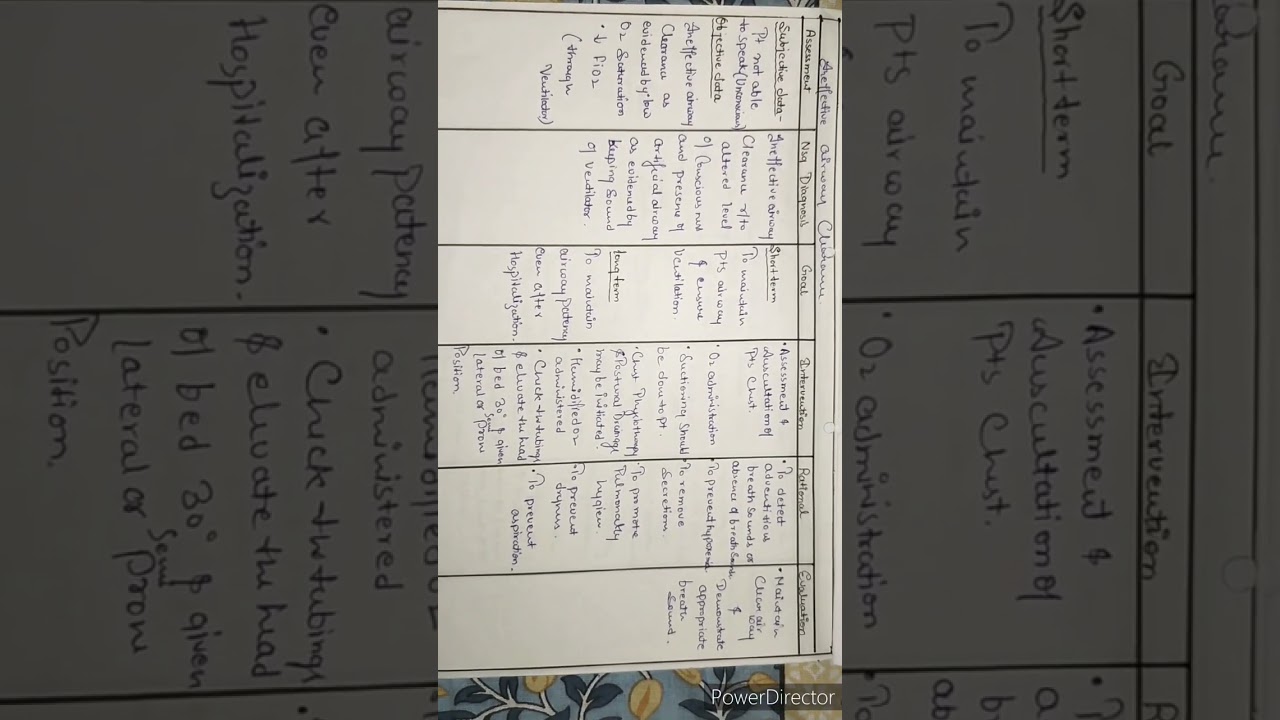 Ineffective airway Clearance.
Assessment
Subjective data-
Pt not able
to speak (Unconscious)
Objective data
Ineffective airway
Clearance as
evidenced by low
O2 Saturation
• ↓ FiO2
(through
Ventilator)
Nsg Diagnosis
Ineffective airway
Clearance r/to
altered level
of Consciousness
and presence of
artificial airway
as evidenced by
Beeping Sound
of Ventilator.
Goal
Short term
To maintain
Pts airway
& ensure
Ventilation.
long term
To maintain
airway patency
even after
Hospitalization.
Intervention
• Assessment &
Auscultation of
Pts Chest.
• O2 administration
• Suctioning Should
be done to pt.
• Chest Physiotherapy
& Postural Drainage
may be initiated.
• Humidified O2
administered
• Check the tubings
& elevate the head
of bed 30° & given
lateral or Semi Prone
Position.
Rational
• To detect
adventitious
breath sounds or
absence of breath sounds
• To prevent hypoxemia
• To remove
Secretions.
• To promote
Pulmonary
hygiene.
• To prevent
dryness.
• To prevent
aspiration.
Evaluation
• Maintain
Clear air
way
&
Demonstrate
appropriate
breath
Sound.
airway patency
even after
Hospitalization.
administered
• Check the tubings
& elevate the head
of bed 30° & given
lateral or Semi Prone
Position.
Goal
Short term
To maintain
Pts airway
Intervention
• Assessment &
Auscultation of
Pts Chest.
• O2 administration
PowerDirector